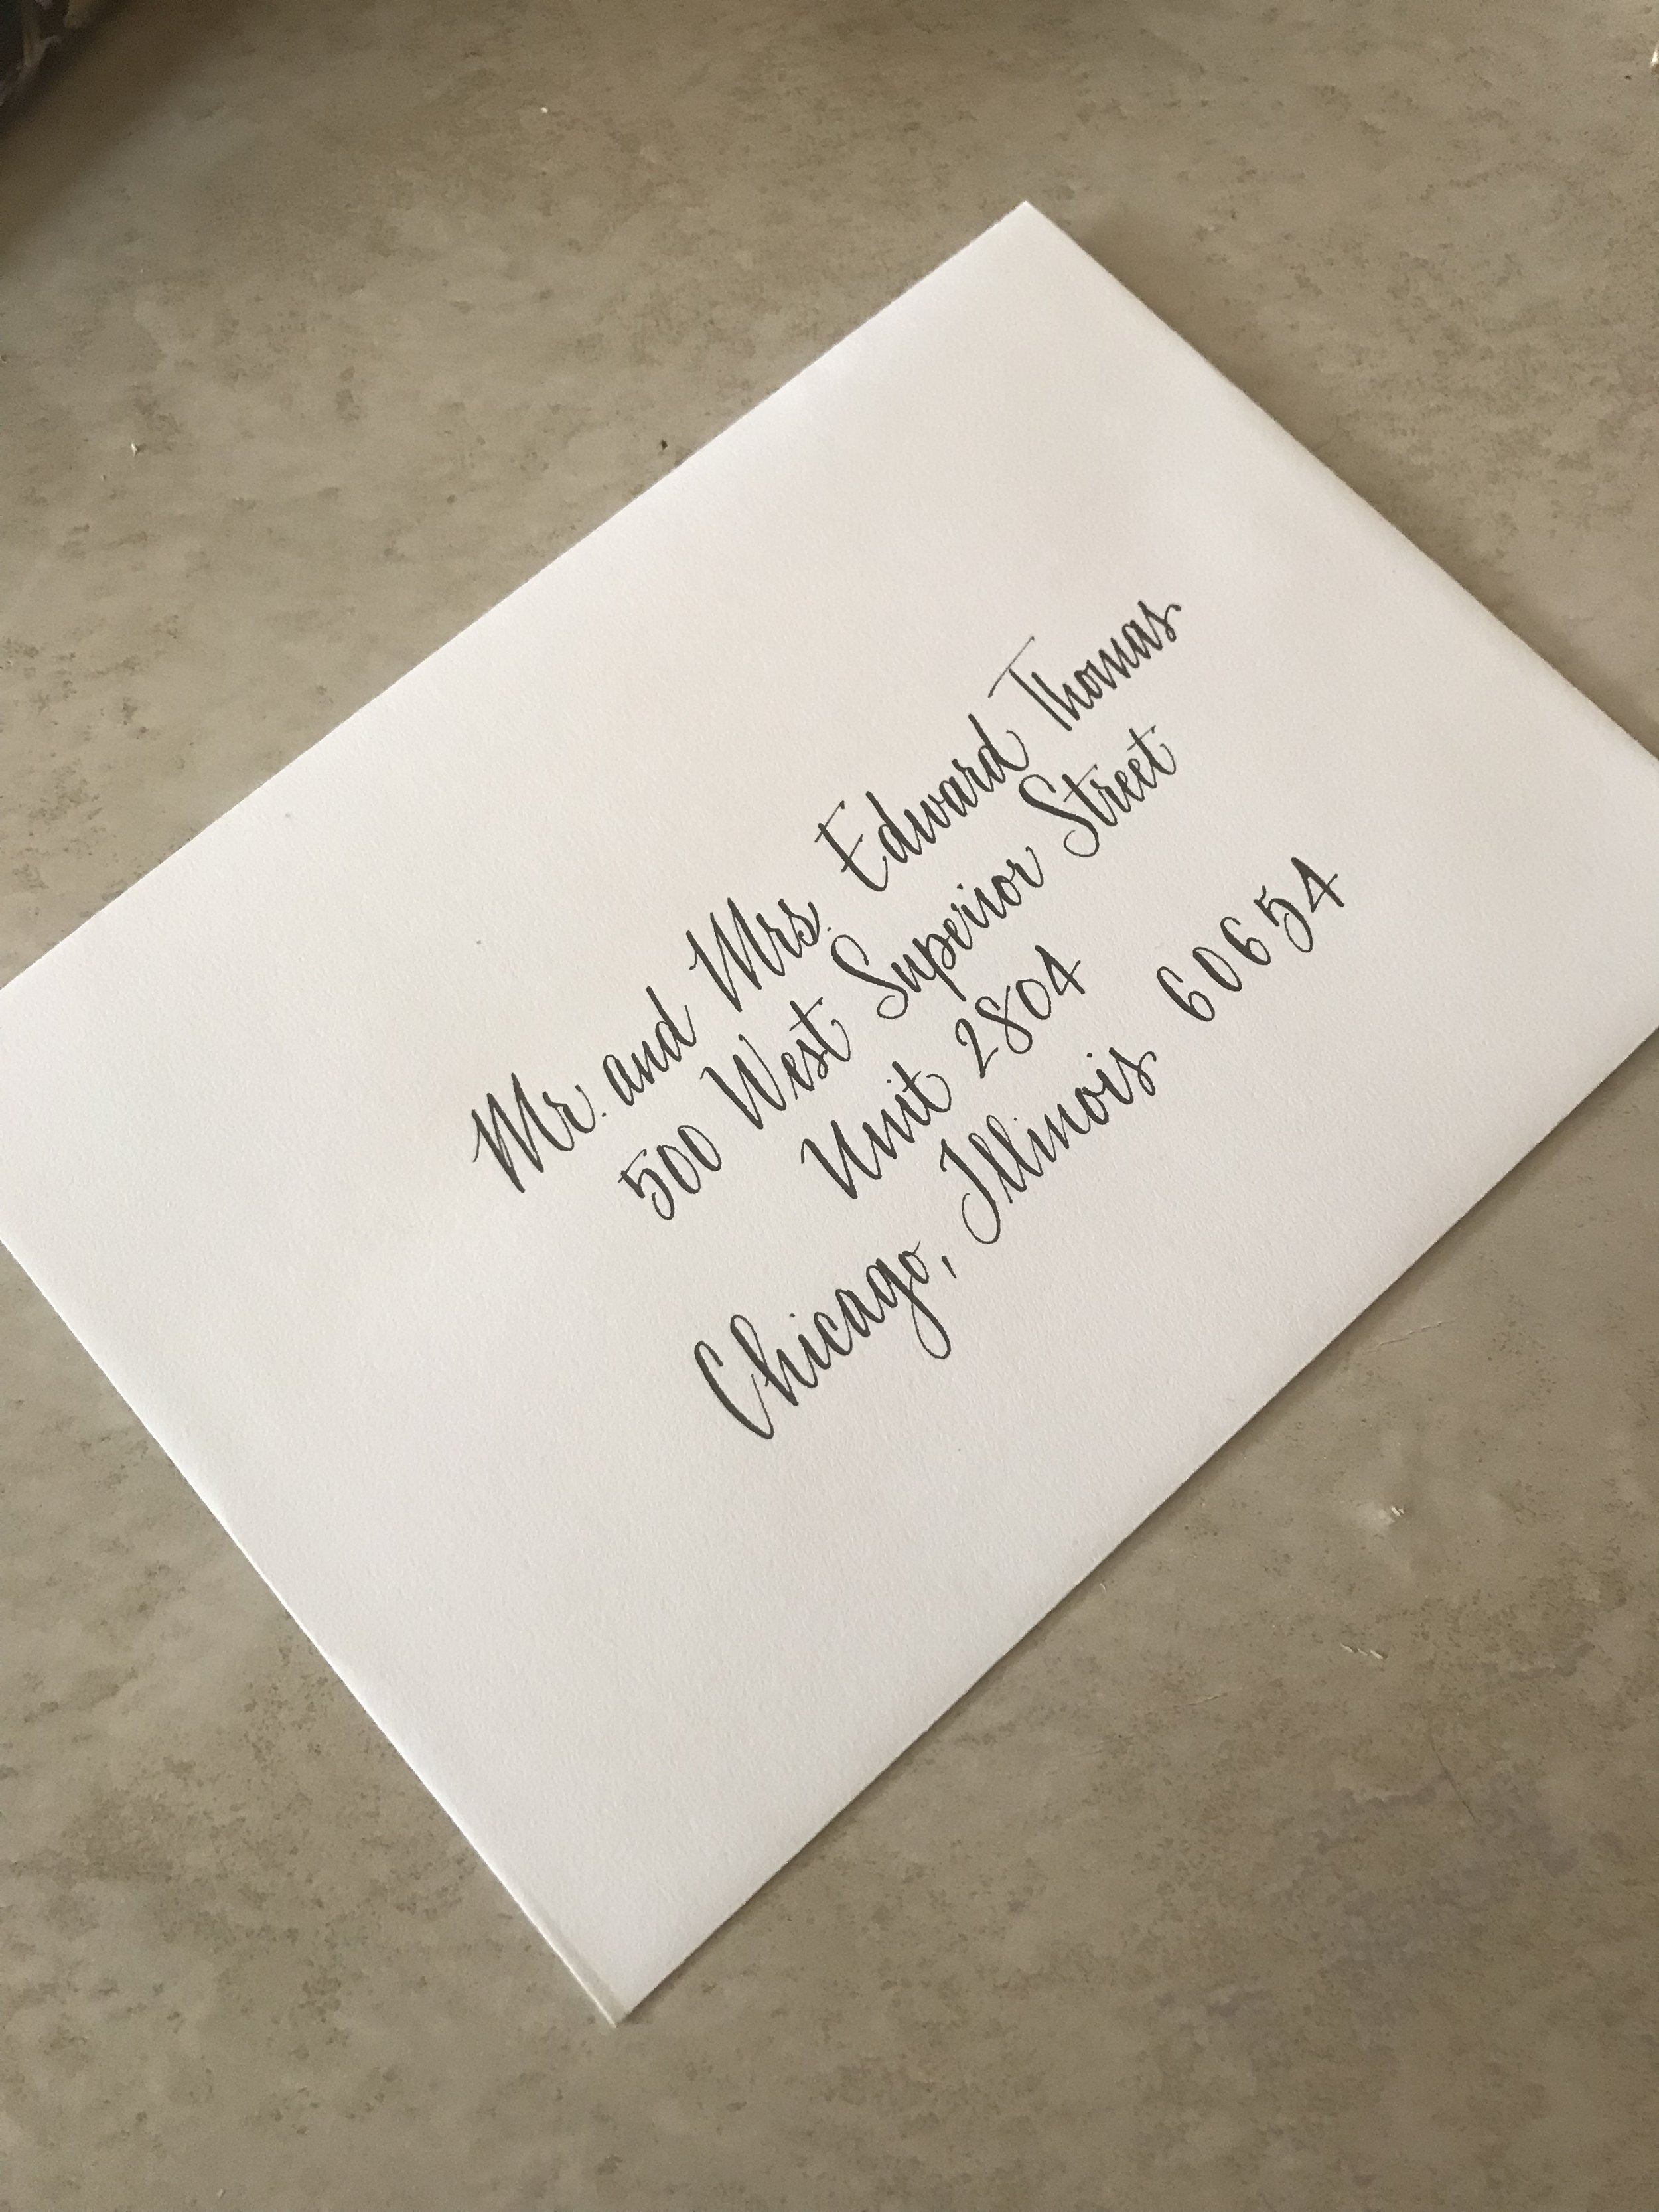 Mr. and Mrs. Edward Thomas
500 West Superior Street
Unit 2804
Chicago, Illinois 60654